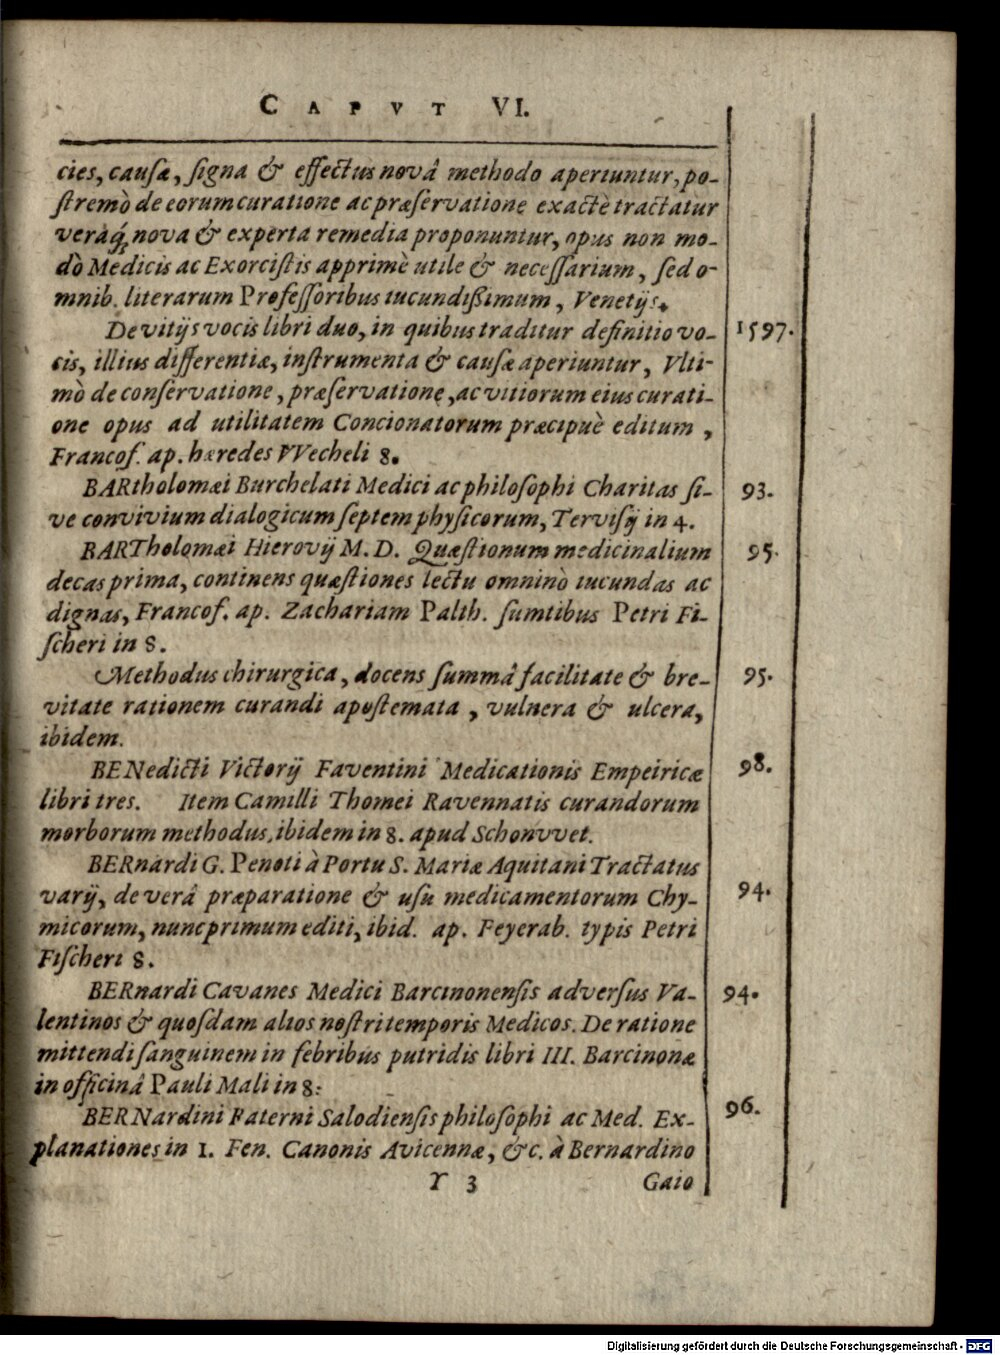 CAPVT VI.
cies, causæ, signa & effectus novâ methodo aperiuntur, po-
stremò de eorum curatione ac præservatione exactè tractatur
veràq́; nova & experta remedia proponuntur, opus non mo-
dò Medicis ac Exorcistis apprimè utile & necessarium, sed o-
mnib. literarum Professoribus iucundißimum, Venetijs.
De vitijs vocis libri duo, in quibus traditur definitio vo- 1597.
cis, illius differentiæ, instrumenta & causæ aperiuntur, Vlti-
mò de conservatione, præservatione, ac vitiorum eius curati-
one opus ad utilitatem Concionatorum præcipuè editum,
Francof. ap. hæredes VVecheli 8.
BARtholomæi Burchelati Medici ac philosophi Charitas si- 93.
ve convivium dialogicum septem physicorum, Tervisij in 4.
BARTholomæi Hierovij M. D. Quæstionum medicinalium 95.
decas prima, continens quæstiones lectu omninò iucundas ac
dignas, Francof. ap. Zachariam Palth. sumtibus Petri Fi-
scheri in 8.
Methodus chirurgica, docens summâ facilitate & bre- 95.
vitate rationem curandi apostemata, vulnera & ulcera,
ibidem.
BENedicti Victorij Faventini Medicationis Empeiricæ 98.
libri tres. Item Camilli Thomei Ravennatis curandorum
morborum methodus, ibidem in 8. apud Schonvvet.
BERnardi G. Penoti à Portu S. Mariæ Aquitani Tractatus
varij, de verâ præparatione & usu medicamentorum Chy- 94.
micorum, nunc primum editi, ibid. ap. Feyerab. typis Petri
Fischeri 8.
BERnardi Cavanes Medici Barcinonensis adversus Va- 94.
lentinos & quosdam alios nostri temporis Medicos. De ratione
mittendi sanguinem in febribus putridis libri III. Barcinonæ
in officinâ Pauli Mali in 8:
BERNardini Paterni Salodiensis philosophi ac Med. Ex- 96.
planationes in 1. Fen. Canonis Avicennæ, &c. à Bernardino
Y 3 Gaio
Digitalisierung gefördert durch die Deutsche Forschungsgemeinschaft - DFG